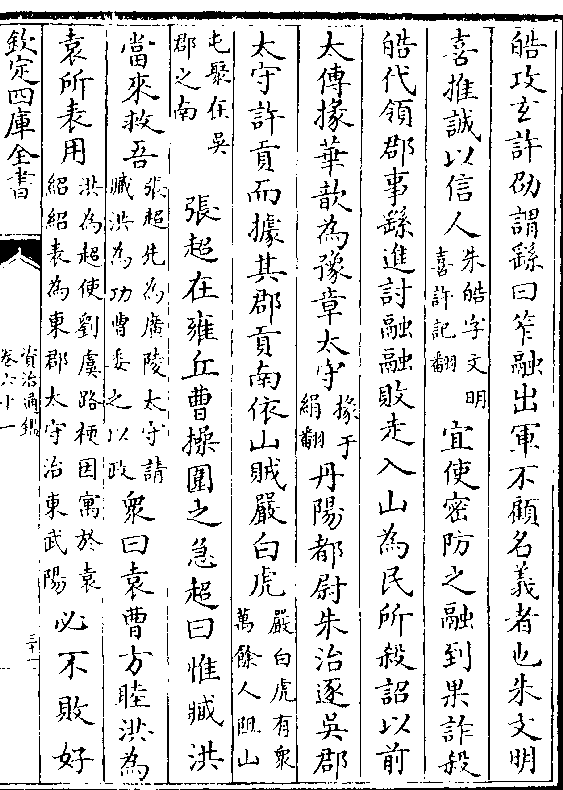 皓攻玄許劭謂繇曰笮融出軍不顧名義者也朱文明
喜推誠以信人朱皓字文明喜許記翻宜使密防之融到果詐殺
皓代領郡事繇進討融融敗走入山為民所殺詔以前
太傅掾華歆為豫章太守掾于絹翻丹陽都尉朱治逐吳郡
太守許貢而據其郡貢南依山賊嚴白虎嚴白虎有衆萬餘人阻山
屯聚在吳郡之南張超在雍丘曹操圍之急超曰惟臧洪
當來救吾張超先為廣陵太守請臧洪為功曹委之以政衆曰袁曹方睦洪為
袁所表用洪為超使劉虞路梗因寓於袁紹紹表為東郡太守治東武陽必不敗好
欽定四庫全書
資治通鑑
卷六十一